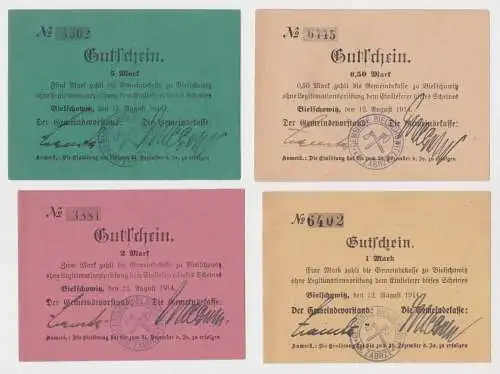 № 4502
Gutschein.
5 Mark
Fünf Mark zahlt die Gemeindekasse zu Bielschowitz
ohne Legitimationsprüfung dem Einlieferer dieses Scheines
Bielschowitz, 12. August 1914.
Der Gemeindevorstand: Die Gemeindekasse:
Anmerk.: Die Einlösung hat bis zum 31. Dezember d. Js. zu erfolgen
№ 6445
Gutschein.
0,50 Mark
0,50 Mark zahlt die Gemeindekasse zu Bielschowitz
ohne Legitimationsprüfung dem Einlieferer dieses Scheines
Bielschowitz, 12. August 1914.
Der Gemeindevorstand: Die Gemeindekasse:
Anmerk.: Die Einlösung hat bis zum 31. Dezember d. Js. zu erfolgen
№ 3381
Gutschein.
2 Mark
Zwei Mark zahlt die Gemeindekasse zu Bielschowitz
ohne Legitimationsprüfung dem Einlieferer dieses Scheines
Bielschowitz, 12. August 1914.
Der Gemeindevorstand: Die Gemeindekasse:
Anmerk.: Die Einlösung hat bis zum 31. Dezember d. Js. zu erfolgen
№ 6402
Gutschein.
1 Mark
Eine Mark zahlt die Gemeindekasse zu Bielschowitz
ohne Legitimationsprüfung dem Einlieferer dieses Scheines
Bielschowitz, 12. August 1914.
Der Gemeindevorstand: Die Gemeindekasse:
Anmerk.: Die Einlösung hat bis zum 31. Dezember d. Js. zu erfolgen